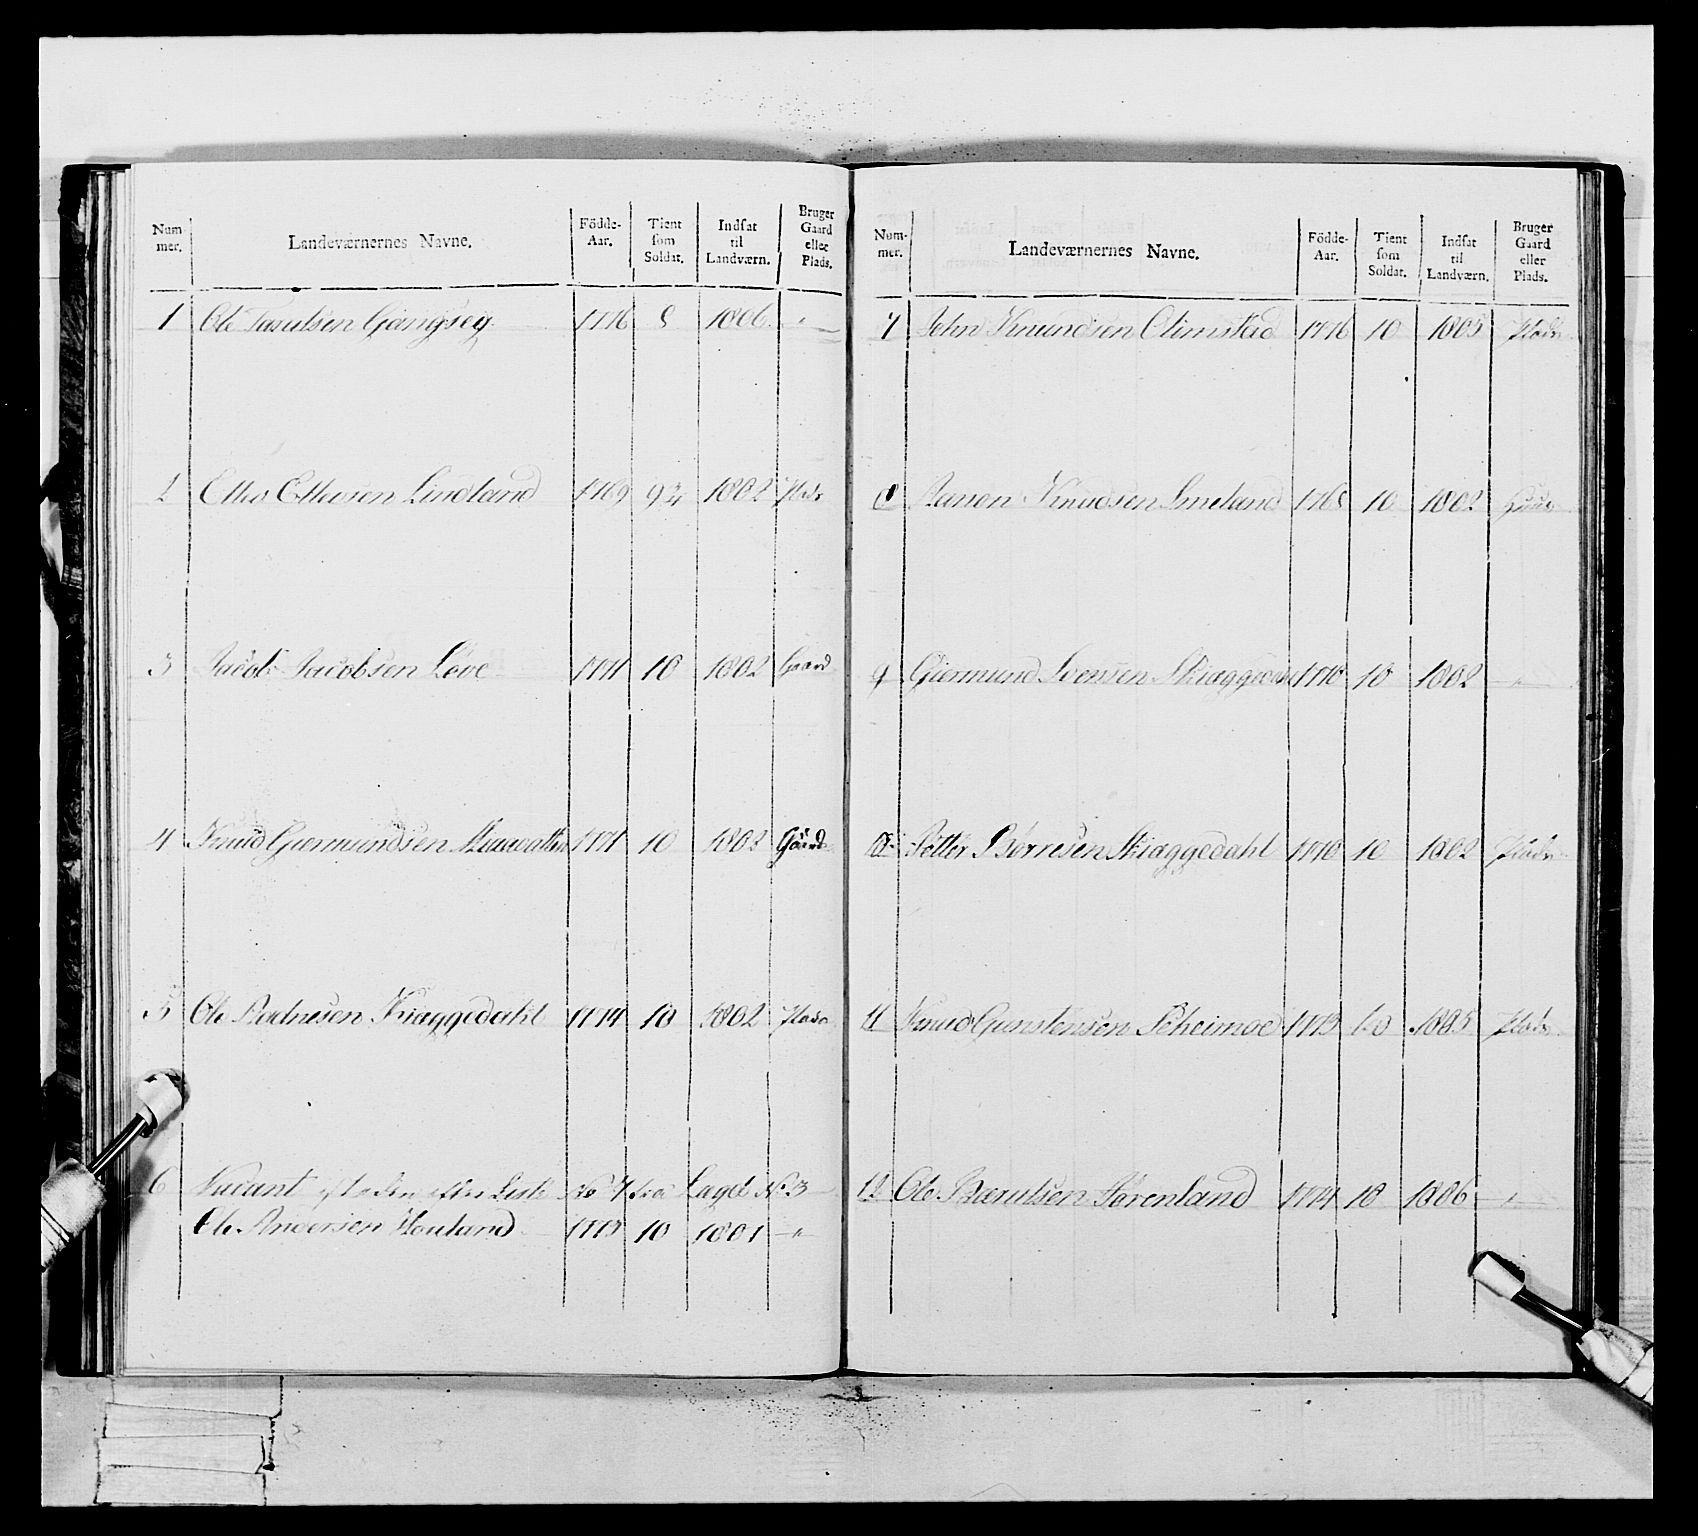 Num mer. Landeværnernes Navne. Födde- Aar. Tient som Soldat. Indsat til Landværn. Bruger Gaard eller Plads.
1 Ole Taraldsen Gangseg 1776 8 1806 "
2 Otto Ottersen Lindland 1769 9¾ 1802 Plads
3 Jacob Jacobsen Løve 1771 10 1802 Gaard
4 Knud Giermundsen 1771 10 1802 Gaard
5 Ole Kiaggedahl 1774 10 1802 Plads
6 Vacant efter Liste No 7 fra Laget N. 3
Ole Andersen Houland 1773 10 1801 "
Num- mer. Landeværnernes Navne. Födde- Aar. Tient som Soldat. Indsat til Landværn. Bruger Gaard eller Plads.
7 John Knundsen Olimstad 1776 10 1805 Plads
8 Aanon Knudsen Smeland 1768 10 1802 Gaard
9 Giermund Svensen Skiaggedahl 1770 10 1802 "
10 Petter Børresen Skiaggedahl 1770 10 1802 Plads
11 Knud Gunstensen 1773 10 1805 Plads
12 Ole 1774 10 1806 "